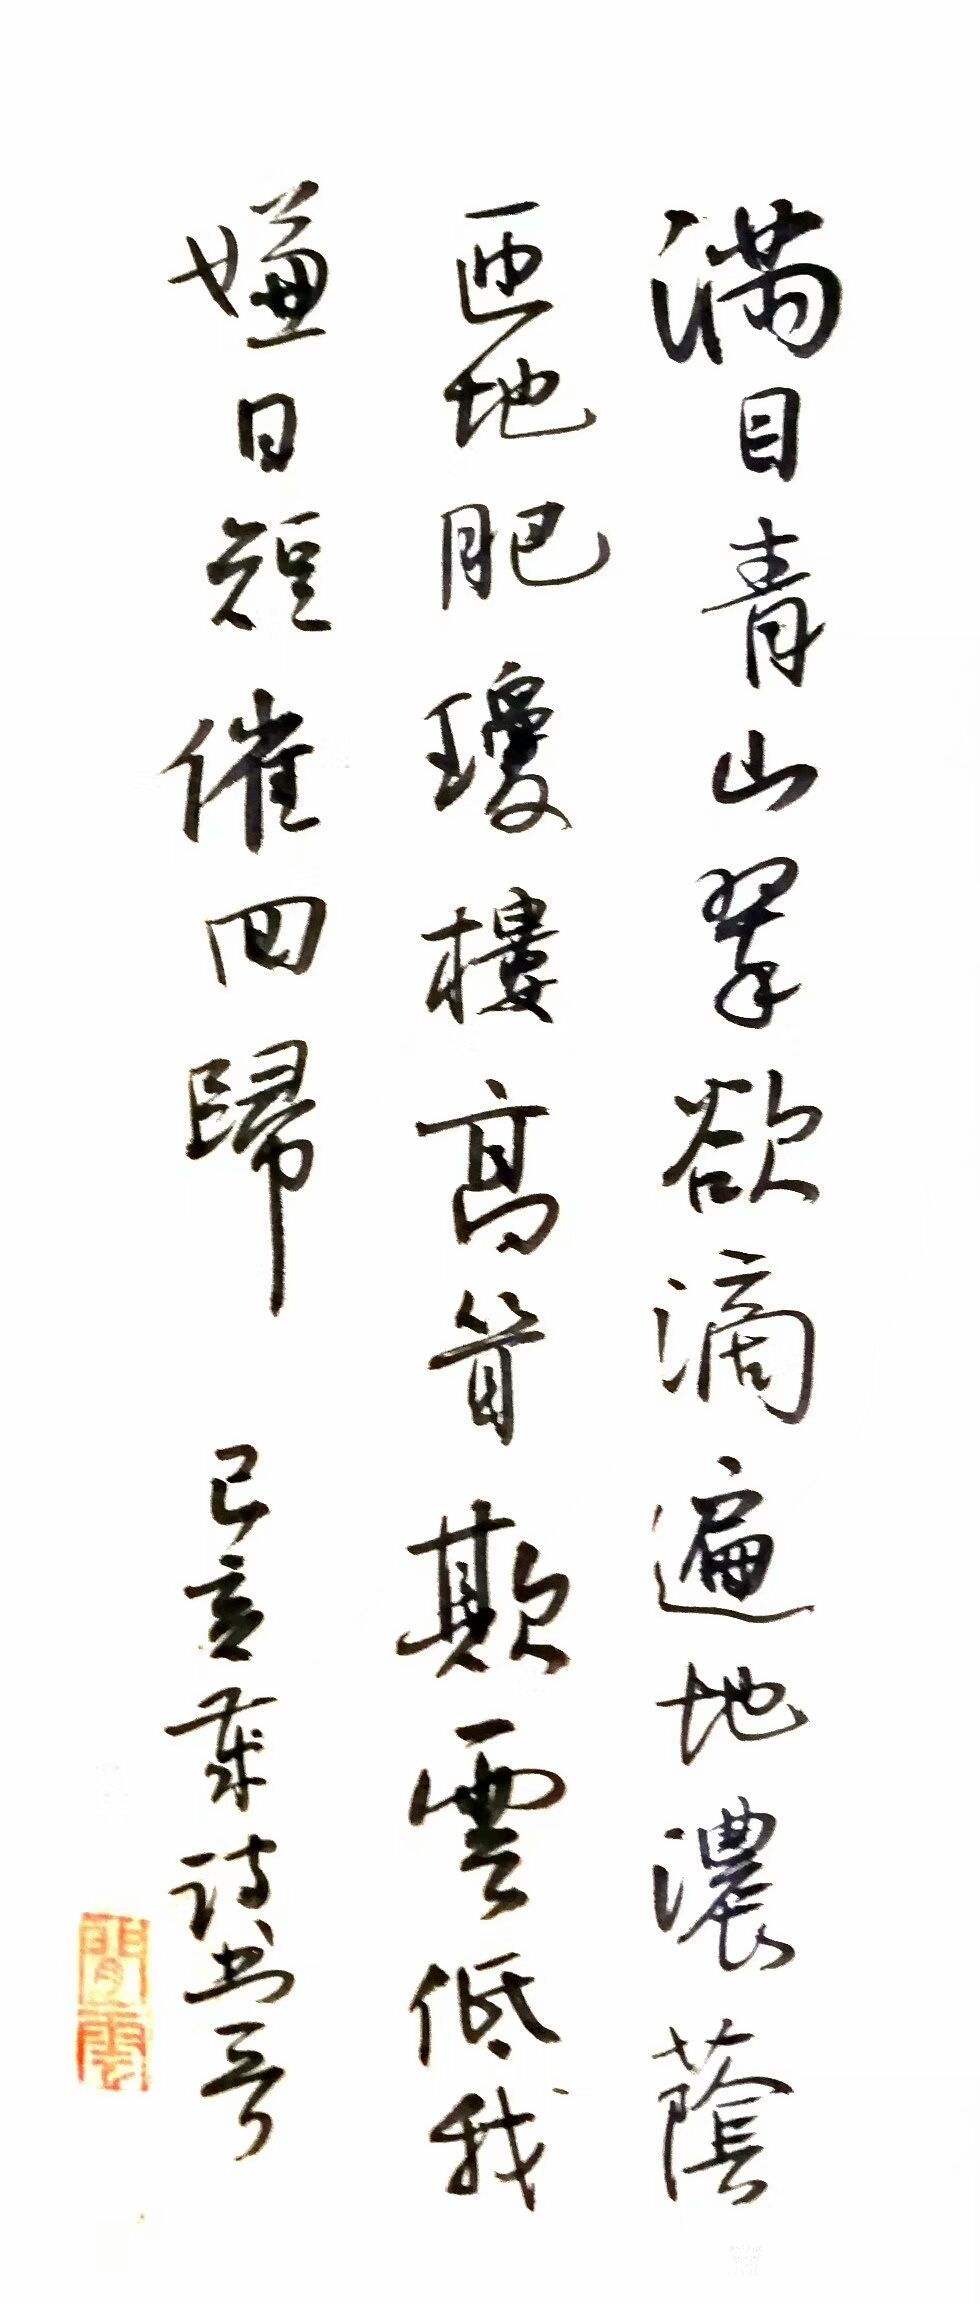 滿目青山翠欲滴遍地濃蔭
匝地肥瓊樓高聳欺雲低我
嫌日短催回歸
己亥歲詩書
閒雲